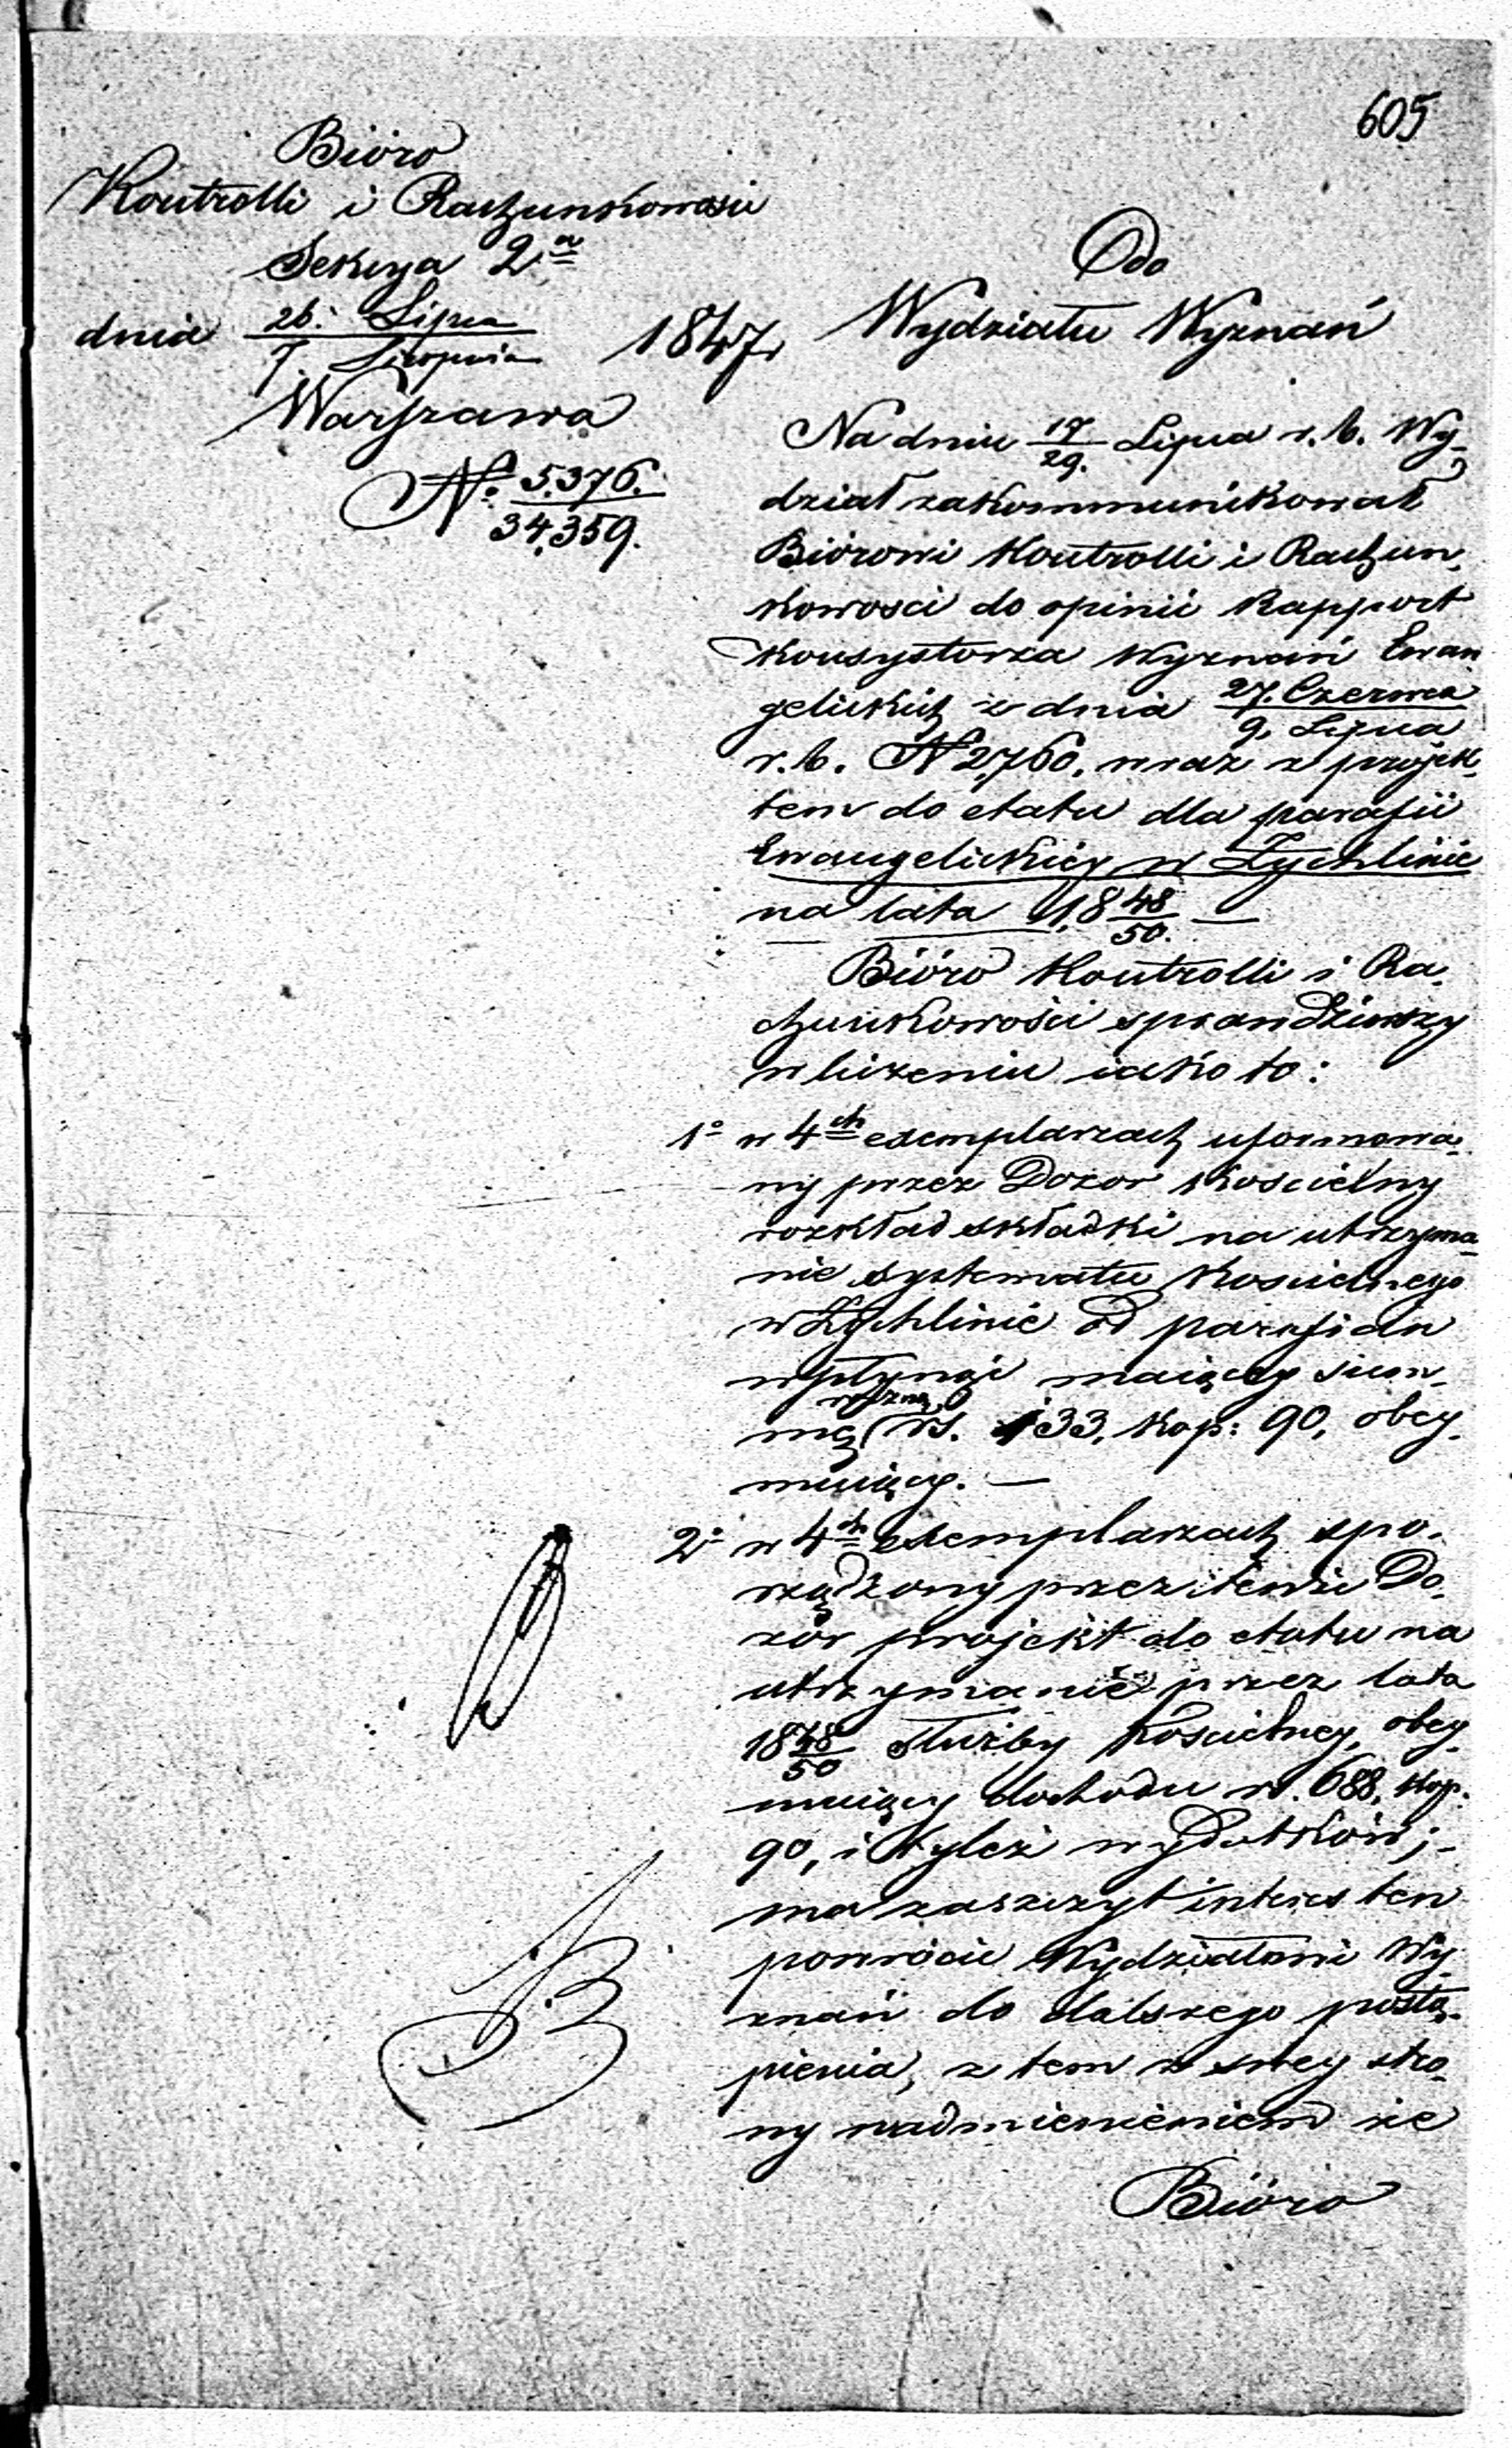 605
Bióro
Kontrolli i Rachunkowości
Sekcya 2a
dnia 26. Lipca / 7 Sierpnia 1847 r
Warszawa
No. 5,376. / 34,359.
Do
Wydziału Wyznań
Na dniu 17/29. Lipca r. b. Wy-
dział zakommunikował
Biórowi Kontrolli i Rachun-
kowosci do opinii Rapport
Konsystorza Wyznań Ewan
gelickich z dnia 27. Czerwca / 9. Lipca
r. b. N 2,760. wraz z projek-
tem do etatu dla parafii
Ewangelickiey w Żychlinie
na lata 18 48/50. —
Bióro Kontrolli i Ra-
chunkowości sprawdziwszy
w liczeniu iako to:
1o w 4ch exemplarzach uformowa-
ny przez Dozor Kościelny
rozkład składki na utrzyma-
nie systematu Kościelnego
w Żychlinie od parafian
wpłynąć maiącey sum-
roczną
mę rs. 133. kop: 90, obey-
muiący. —
2o w 4ch exemplarzach spo-
rządzony przez tenże Do-
zór projekt do etatu na
utrzymanie przez lata
18 48/50 służby Kościelney, obey-
muiący dochodu rs. 688, kop.
90, i tyleż wydatków; -
ma zaszczyt interes ten
powrócić Wydziałowi Wy-
znań do dalszego postą-
pienia, z tem z swey stro-
ny nadmienieniem że
Bióro